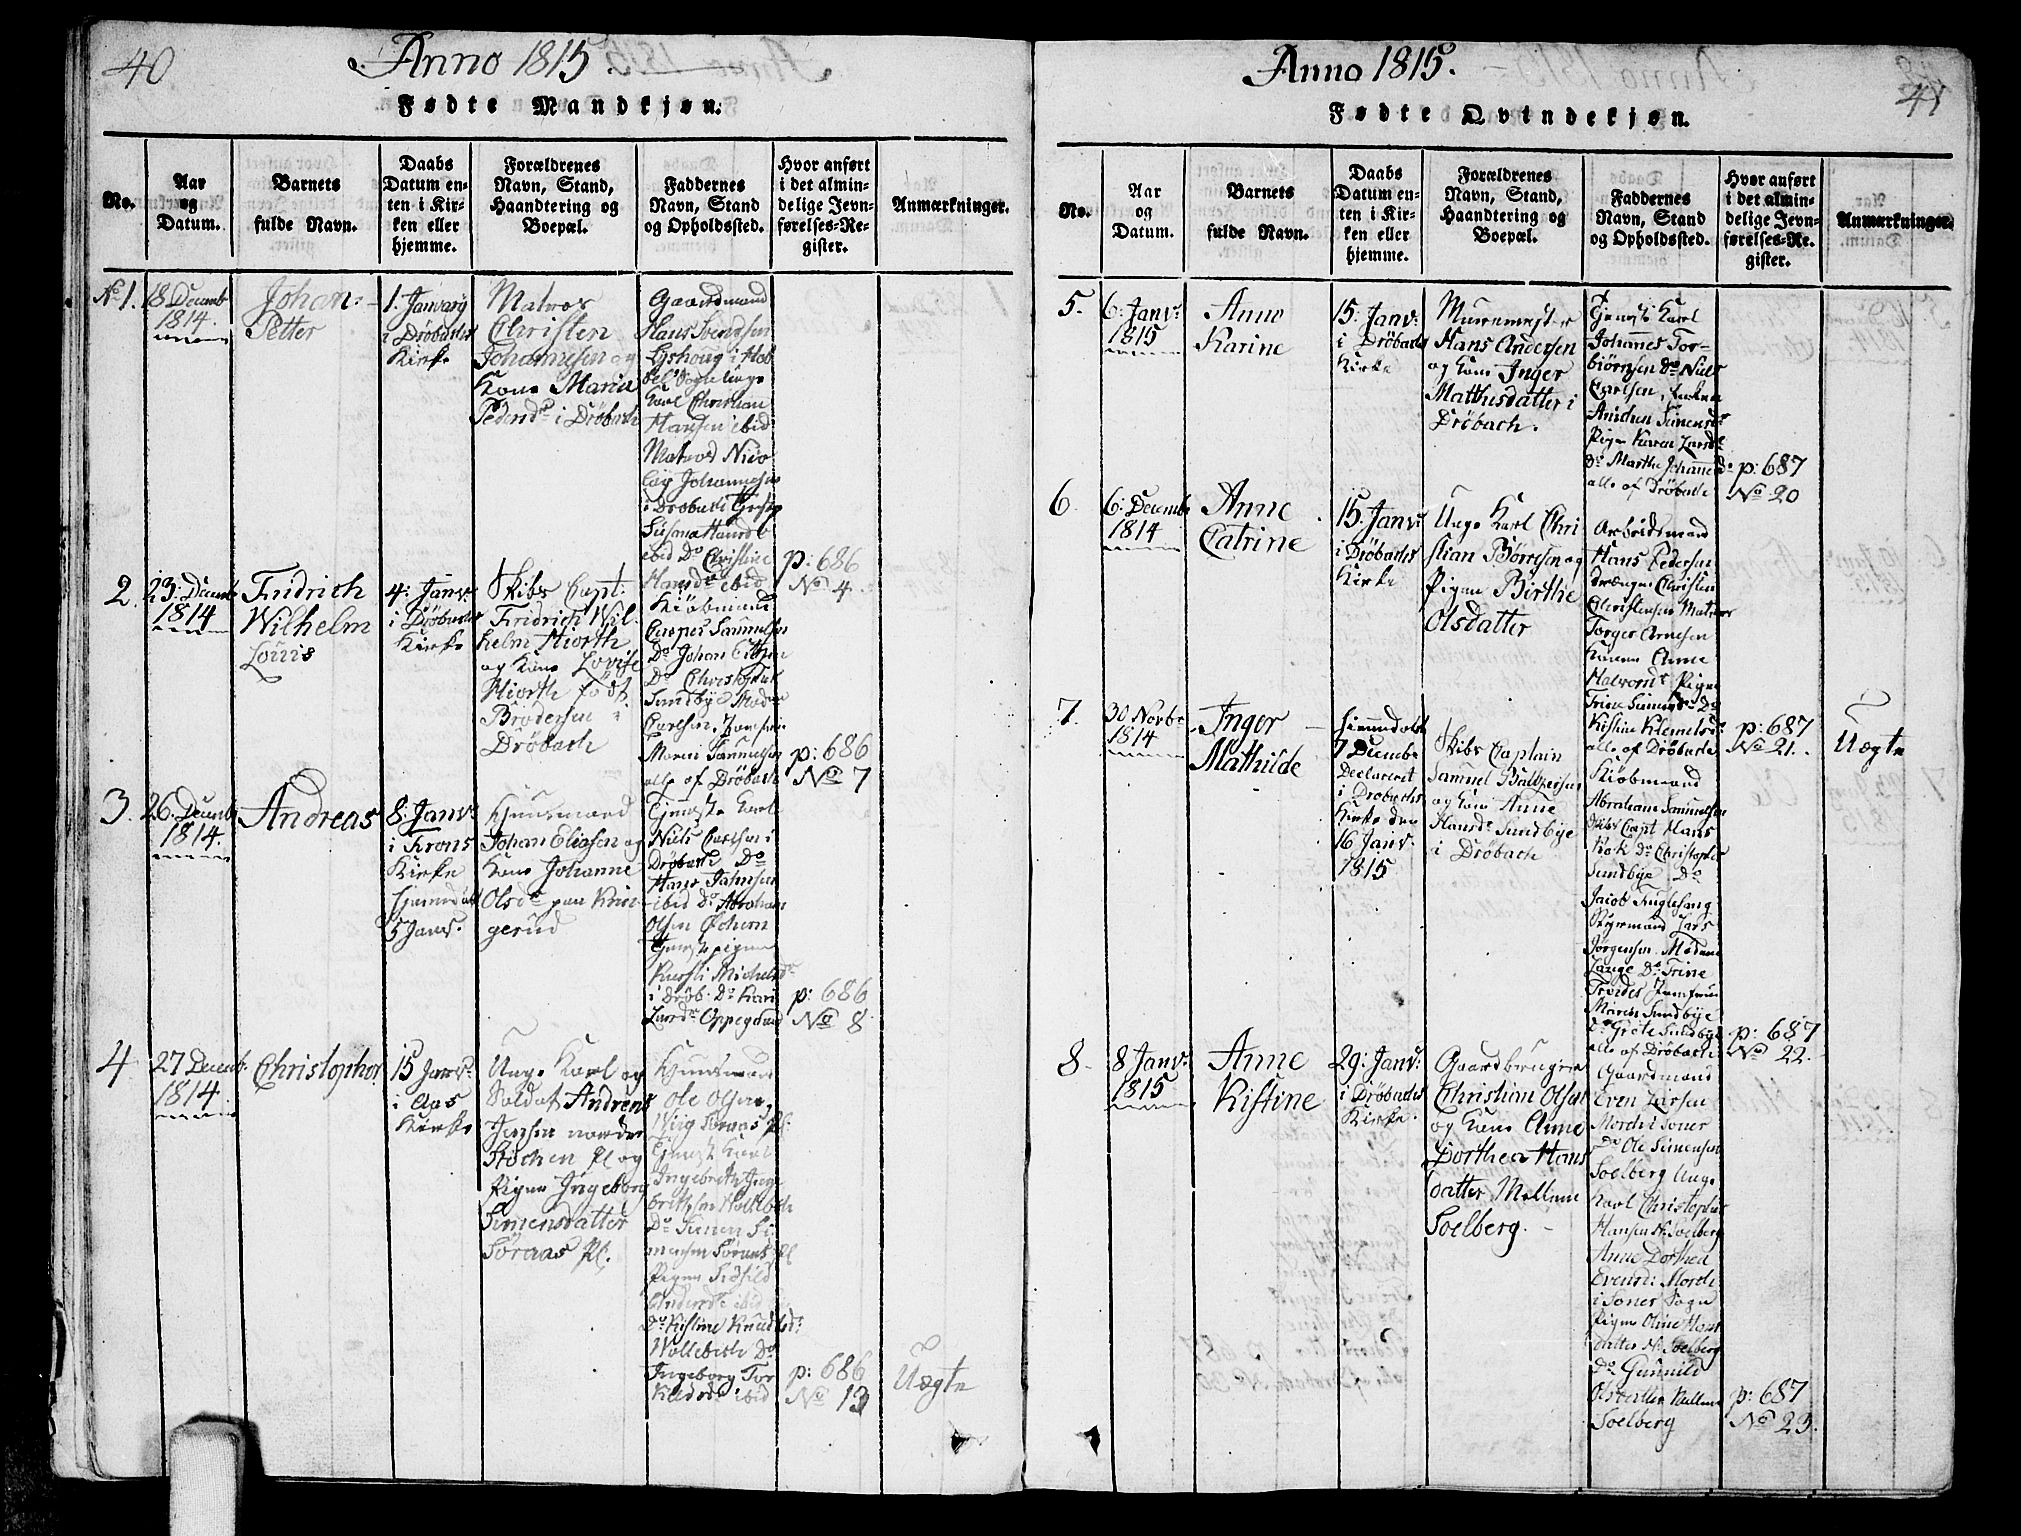 40
Anno 1815.
Fødte Mandkjøn.
No.
Aar
og
Datum.
Barnets
fulde Navn.
Daabs
Datum en-
ten i Kir-
ken eller
hjemme.
Forældrenes
Navn, Stand,
Haandtering og
Boepæl.
Faddernes
Navn, Stand
og Opholdssted.
Hvor anført
i det almin-
delige Jevn-
førelses-Re-
gister.
Anmærkninger.
No 1.
18 Decemb
1814.
Johan
Petter
1. Januarij
i Drøbachs
Kirke
Matros
Christen
Johannesen og
Kone Maria
Pedersdr i Drøbach
Gaardmand
Hans Svendsen
i Hob
bøl Sogn Unge
Karl Christian
Hansen ibid
Matros Nico
lay Johannesen
i Drøbach
Susma Hansd
ibid Do Christine
Hansdr ibid
p: 686
No 4.
2.
23: Decemb
1814
Fridrich
Wilhelm
Louis
4: Janv:
i Drøbachs
Kirke
Skibs Capt:
Fridrich Wil-
helm Hiorth
og Kone Lovise
Hiorth født
Brodersen i
Drøbach
Kiøbmand
Casper Samuelsen
Do Johan
Do Christopher
Sundbye Madm
Carlsen, Jomfrue
Maren Samuelsen
alle af Drøbach
p: 686
No 7
3.
26. Decemb
1814.
Andreas
8: Janv:
i Krons
Kirke
hjemedøbt
5 Janv.
Huusmand
Johan Eliasen og
Kone Johanne
Olsdr paa
gerud
Tjeneste Karl
Niels Carlsen i
Drøbach Do
Hans
ibid Do Abraham
Olsen
Tjenstepigen
Michelsdr
i Drøb. Do Kari
Larsdr Oppegaard
p: 686
No 8
4
27 Decemb.
1814
Christopher
15 Janv:
i Aas
Kirke
Unge Karl og
Soldat Andreas
Jensen nordre
Pl og
Pigen Ingeborg
Simensdatter
Søraas Pl.
Huusmand
Ole Olsen
Wiig Søraas Pl.
Tjeneste Karl
Ingebreth Inge
brethsen Wollebech
Do Simen Si
mensen Søraas Pl
Pigen
Andersdr ibid
Do Kistine Knudsd:
Wollebech Do
Ingeborg Tor
kildsdr ibid
p: 686
No 13
Uægte
41
Anno 1815.
Fødte Qvindekjøn.
No.
Aar
og
Datum.
Barnets
fulde Navn.
Daabs
Datum en-
ten i Kir-
ken eller
hjemme.
Forældrenes
Navn, Stand,
Haandtering og
Boepæl.
Faddernes
Navn, Stand
og Opholdssted.
Hvor anført
i det almin-
delige Jevn-
førelses-Re-
gister.
Anmærkninger.
5.
6. Janv:
1815
Anne
Karine
15: Janv:
i Drøbachs
Kirke
Muremester
Hans Andersen
og Kone Inger
Mathisdatter i
Drøbach.
Tjenst Karl
Johannes Tor-
biørnsen Do Niels
Carlsen, Enken
Anichen Simensdr
Pigen Karen Larsdr
Do Marthe Johannesd
alle af Drøbach
p: 687
No 20
6.
6: Decemb
1814
Anne
Catrine
15. Janv:
i Drøbachs
Kirke
Unge Karl Chri
stian Børresen og
Pigen Birthe
Olsdatter
Arbeidsmand
Hans Pedersen
Drengen Christen
Christensen Matros
Torger Arnesen
Konen Anne
Halvorsdr Pigen
Trine Simensdr Do
Kistine Klemetsdr
alle af Drøbach
p: 687
No 21.
Uægte
7.
30 Novbr
1814
Inger
Mathilde
hiemmdøbt
7 Decembr
Declareret
i Drøbachs
Kirke den
16 Janv.
1815
Skibs Captain
Samuel Balthersen
og Kone Anne
Hansdr Sundbye
i Drøbach
Kiøbmand
Abraham Samuelsen
Skibs Capt Hans
Kok Do Christopher
Sundbye Do
Jacob Fuglesang
Styrmand Lars
Jørgensen. Madame
Lange Do Trine
Jomfrue
Maren Sundbye
Do Grete Sundbye
alle af Drøbach
p: 687
No 22.
8.
8 Janv:
1815
Anne
Kistine
29: Janv:
i Drøbachs
Kirke.
Gaardbruger
Christian Olsen
og Kone Anne
Dorthea Hans
datter Mellem
Soelberg.
Gaardmand
Even Larsen
Morch i Soner
Do Ole Simensen
Soelberg Unge
Karl Christopher
Hansen N. Soelberg
Anne Dorthea
Evensd: Morch
i Soner Sogn
Pigen Oline Hans
datter N. Soelberg
Do Gunnild
Olsdatter Mellem
Soelberg
p: 687
No 23.